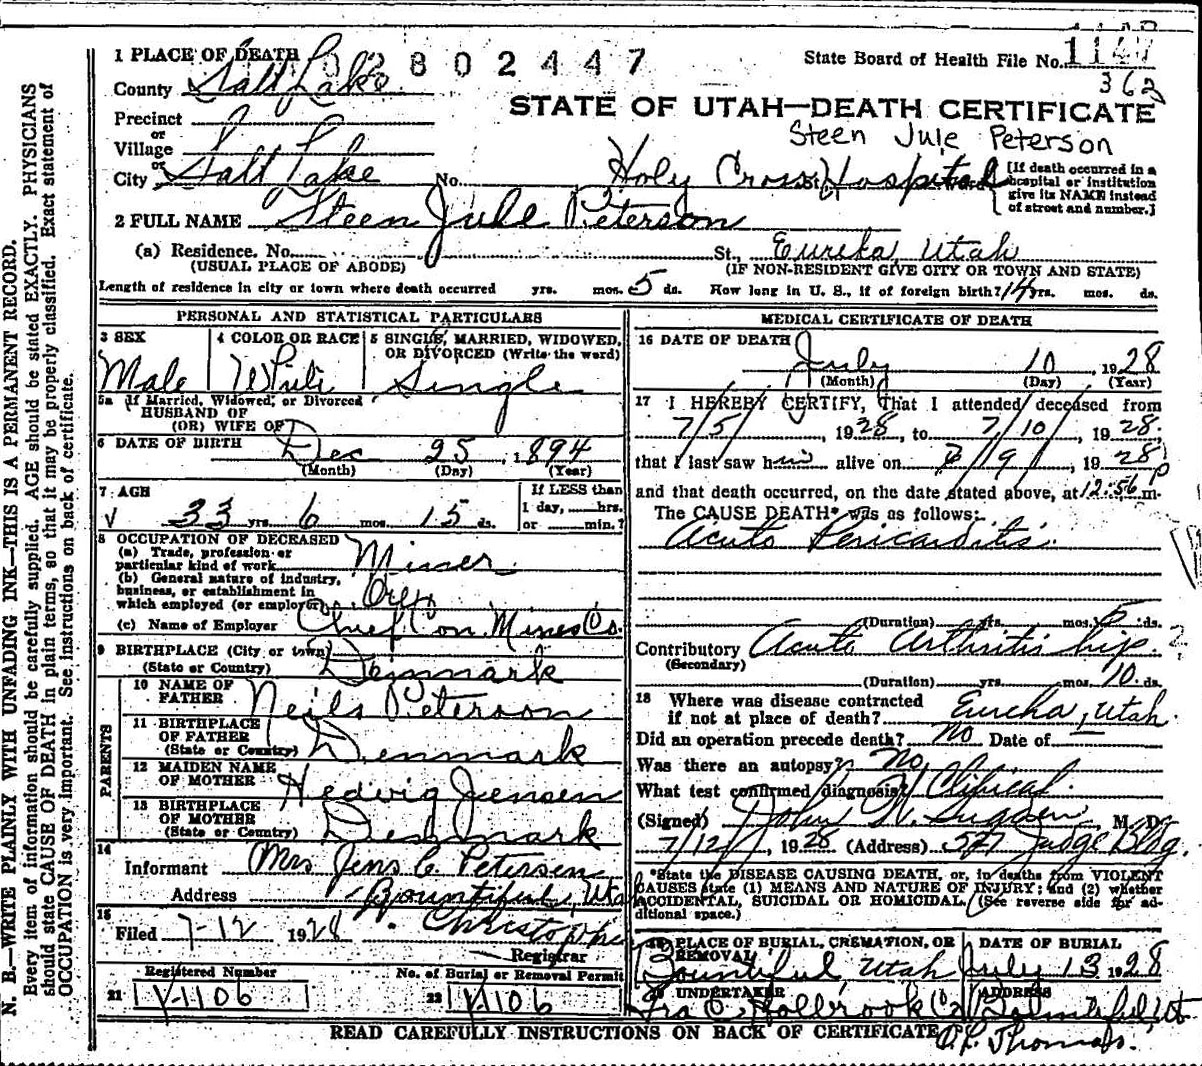 1 PLACE OF DEATH 2802447
State Board of Health File No. 1147
362
County Salt Lake
STATE OF UTAH—DEATH CERTIFICATE
Steen Jule Peterson
Precinct
or
Village
or
City Salt Lake No. Holy Cross Hospital
[If death occurred in a
hospital or institution
give its NAME instead
of street and number.]
2 FULL NAME Steen Jule Peterson
(a) Residence. No. St., Eureka, Utah
(USUAL PLACE OF ABODE) (IF NON-RESIDENT GIVE CITY OR TOWN AND STATE)
Length of residence in city or town where death occurred yrs. mos. 5 ds. How long in U. S., if of foreign birth? 14 yrs. mos. ds.
PERSONAL AND STATISTICAL PARTICULARS
3 SEX 4 COLOR OR RACE 5 SINGLE, MARRIED, WIDOWED,
OR DIVORCED (Write the word)
Male White Single
5a (If Married, Widowed, or Divorced
HUSBAND OF
(OR) WIFE OF
6 DATE OF BIRTH Dec 25, 1894
(Month) (Day) (Year)
7 AGE If LESS than
1 day, hrs.
33 yrs. 6 mos. 15 ds. or min.?
8 OCCUPATION OF DECEASED
(a) Trade, profession or
particular kind of work Miner
(b) General nature of industry,
business, or establishment in
which employed (or employer)
(c) Name of Employer Chief Con. Mines Co.
9 BIRTHPLACE (City or town)
(State or Country) Denmark
PARENTS
10 NAME OF
FATHER Neils Peterson
11 BIRTHPLACE
OF FATHER
(State or Country) Denmark
12 MAIDEN NAME
OF MOTHER Hedvig Jensen
13 BIRTHPLACE
OF MOTHER
(State or Country) Denmark
14
Informant Mrs Jens C. Petersen
Address Bountiful, Utah
15
Filed 7-12 1928 Christophe
Registrar
Registered Number No. of Burial or Removal Permit
21 V-1106 22 V-1106
MEDICAL CERTIFICATE OF DEATH
16 DATE OF DEATH
July 10, 1928
(Month) (Day) (Year)
17 I HEREBY CERTIFY, That I attended deceased from
7/5/, 1928, to 7/10/, 1928.
that I last saw him alive on 7/9/, 1928
and that death occurred, on the date stated above, at 12:56 p m.
The CAUSE DEATH* was as follows:
Acute Pericarditis.
(Duration) yrs. mos. 5 ds.
Contributory Acute Arthritis hip.
(Secondary)
(Duration) yrs. mos. 10 ds.
18 Where was disease contracted
if not at place of death? Eureka, Utah.
Did an operation precede death? No Date of
Was there an autopsy? No
What test confirmed diagnosis? Clinical.
(Signed) John W. Sugden, M. D.
7/12/, 1928 (Address) 527 Judge Bldg.
*State the DISEASE CAUSING DEATH, or, in deaths from VIOLENT
CAUSES state (1) MEANS AND NATURE OF INJURY; and (2) whether
ACCIDENTAL, SUICIDAL OR HOMICIDAL. (See reverse side for ad-
ditional space.)
19 PLACE OF BURIAL, CREMATION, OR
REMOVAL DATE OF BURIAL
Bountiful Utah July 13 1928
20 UNDERTAKER ADDRESS
Ira C. Holbrook Co Bountiful, Ut
READ CAREFULLY INSTRUCTIONS ON BACK OF CERTIFICATE
O.L. Thomas.
N. B.—WRITE PLAINLY WITH UNFADING INK—THIS IS A PERMANENT RECORD.
Every item of information should be carefully supplied. AGE should be stated EXACTLY. PHYSICIANS
should state CAUSE OF DEATH in plain terms, so that it may be properly classified. Exact statement of
OCCUPATION is very important. See instructions on back of certificate.